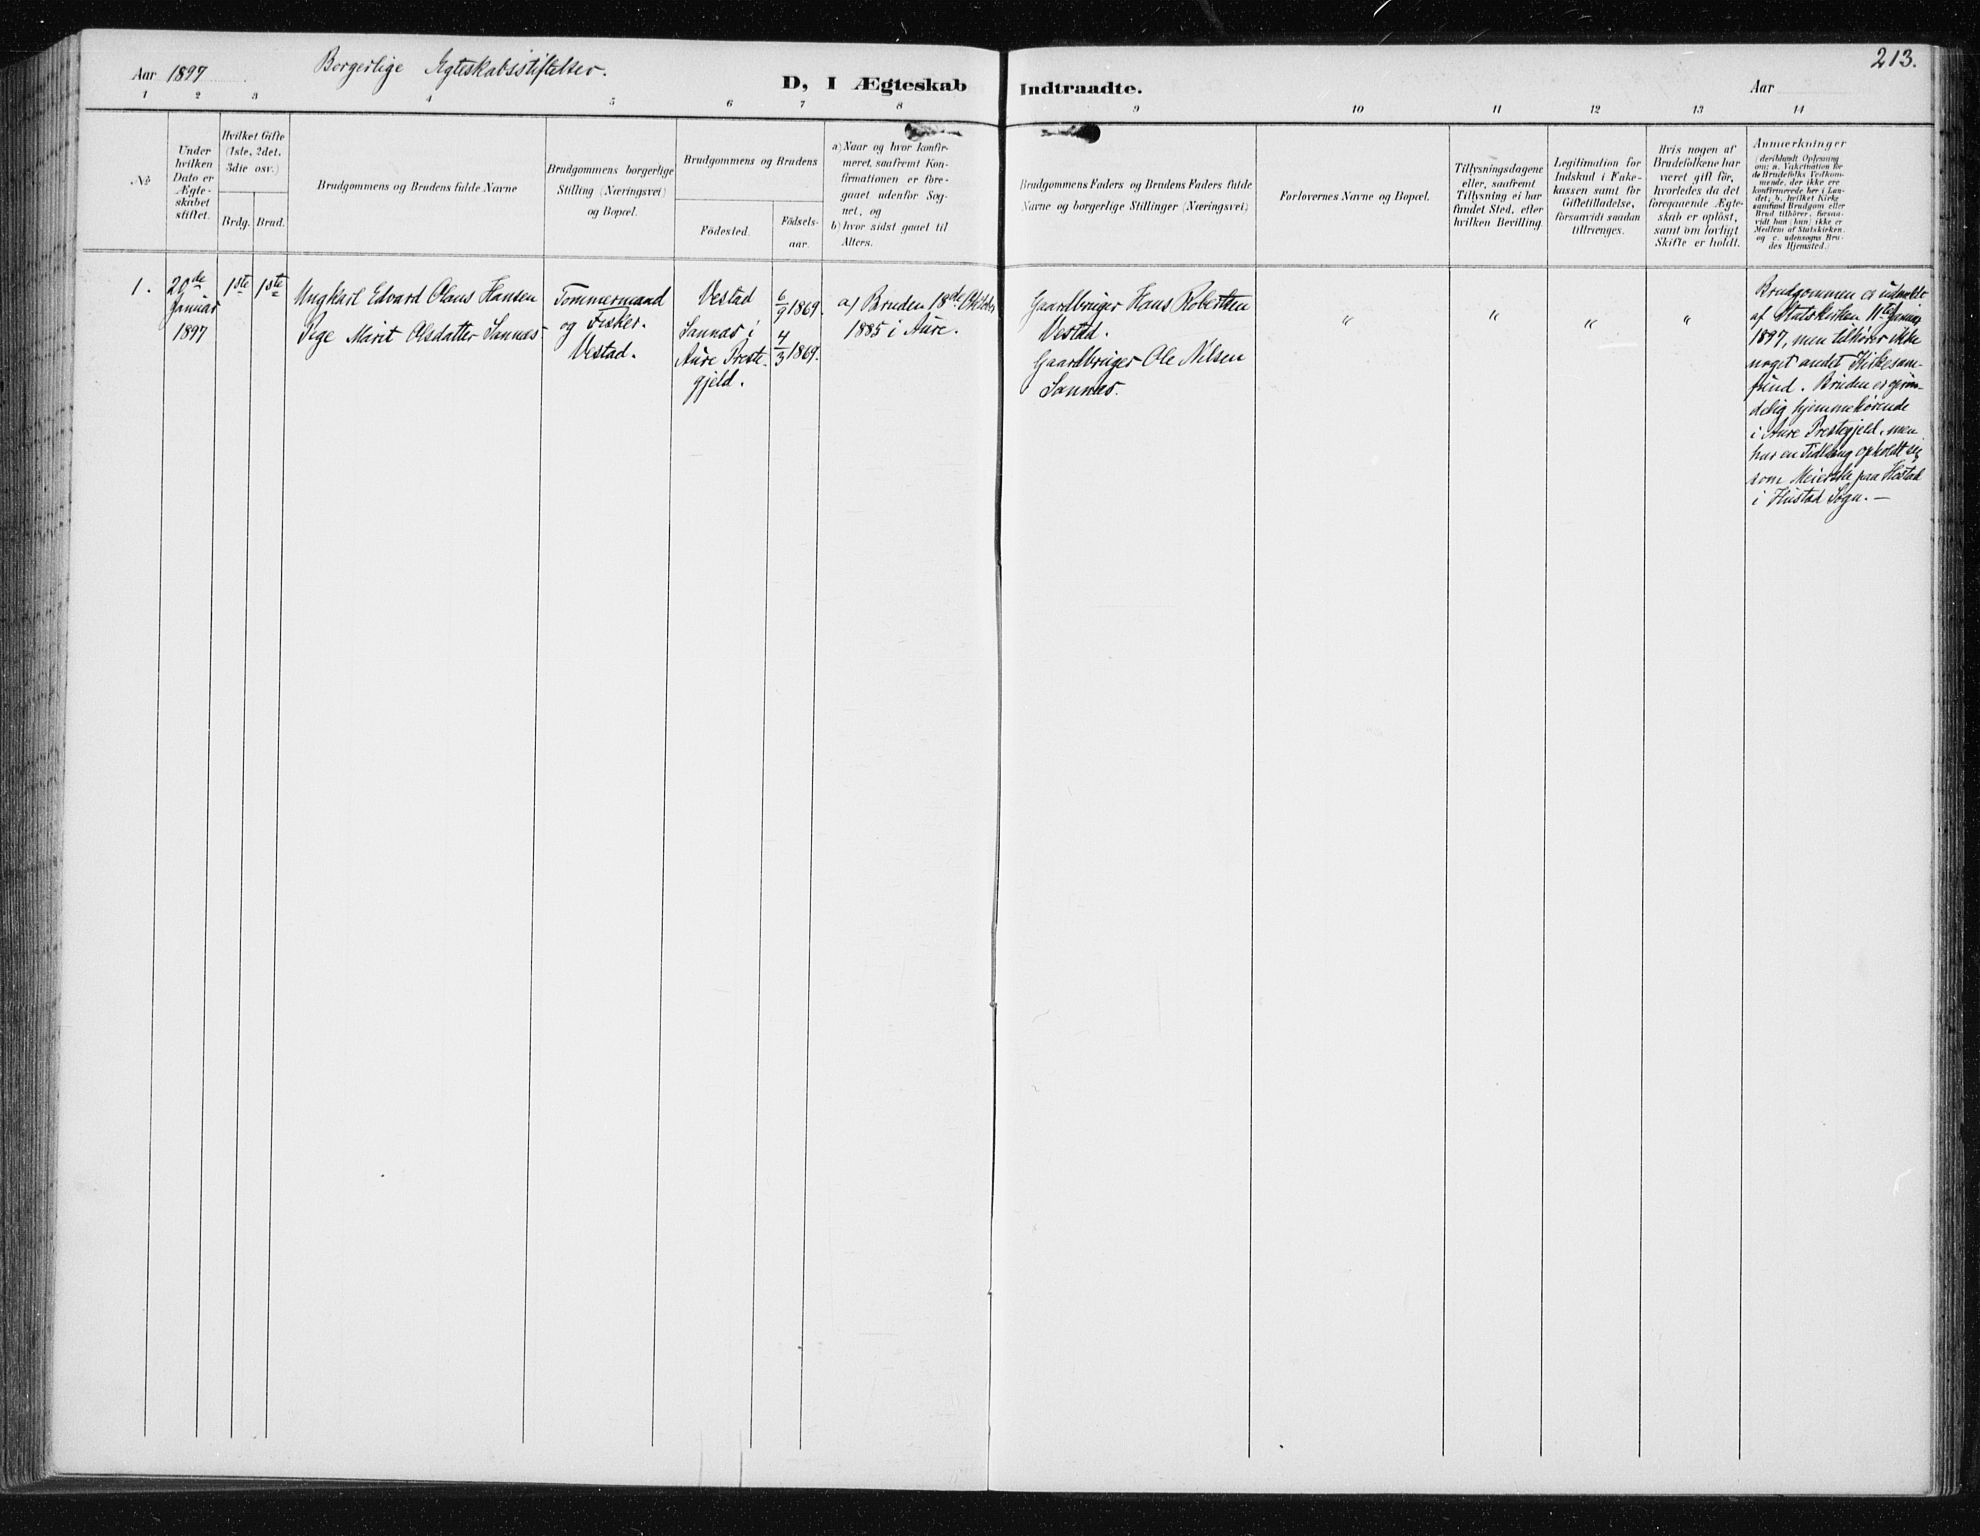 213.
Aar 1897 Borgerlige Ægteskabsstiftelser.
D, I Ægteskab Indtraadte. Aar
1 2 3 4 5 6 7 8 9 10 11 12 13 14
№
Under
hvilken
Dato er
Ægte-
skabet
stiftet.
Hvilket Gifte
(1ste, 2det,
3die osv.)
Brdg. Brud.
Brudgommens og Brudens fulde Navne
Brudgommens borgerlige
Stilling (Næringsvei)
og Bopæl.
Brudgommens og Brudens
Födested.
Födsels-
aar.
a) Naar og hvor konfir-
meret, saafremt Kon-
firmationen er fore-
gaaet udenfor Sog-
net, og
b) hvor sidst gaaet til
Alters.
Brudgommens Faders og Brudens Faders fulde
Navne og borgerlige Stillinger (Næringsvei)
Forlovernes Navne og Bopæl.
Tillysningsdagene
eller, saafremt
Tillysning ei har
fundet Sted, efter
hvilken Bevilling.
Legitimation for
Indskud i Enke-
kassen samt for
Giftetilladelse,
forsaavidt saadan
tiltrænges.
Hvis nogen af
Brudefolkene har
været gift för,
hvorledes da det
foregaaende Ægte-
skab er oplöst,
samt om lovligt
Skifte er holdt.
Anmærkninger
(deriblandt Oplysning
om: a. Vakcination for
de Brudefolks Vedkom-
mende, der ikke ere
konfirmerede her i Lan-
det; b. hvilket Kirke-
samfund Brudgom eller
Brud tilhörer, forsaa-
vidt han (hun) ikke er
Medlem af Statskirken,
og c. udensogns Bru-
des Hjemsted.)
1.
20de
Januar
1897
1ste 1ste
Ungkarl Edvard Olaus Hansen
Pige Marit Olsdatter Sannæs
Tømmermand
og Fisker.
Vestad.
Vestad
Sannæs i
Aure Preste-
gjeld.
6/9 1869.
4/3 1869.
a) Bruden 18de Oktober
1885 i Aure.
Gaardbruger Hans Robertsen
Vestad.
Gaardbruger Ole Nilsen
Sannæs.
"
"
"
"
Brudgommen er udmeldt
af Statskirken 11te Januar
1897, men tilhører ikke
noget andet Kirkesam-
fund. Bruden er egent-
delig hjemmehørende
i Aure Prestegjeld, men
har en Tidlang opholdt sig
som Meierske paa Hustad
i Hustad Sogn. —